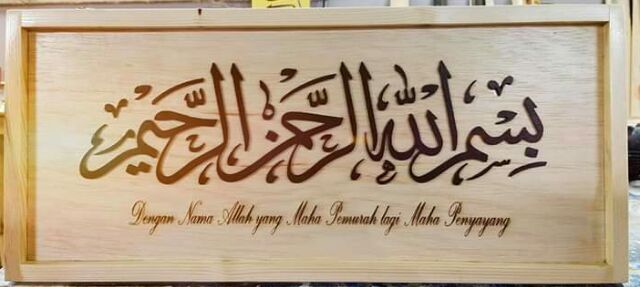 بِسْمِ اللهِ الرَّحْمٰنِ الرَّحِيْمِ
Dengan Nama Allah yang Maha Pemurah lagi Maha Penyayang